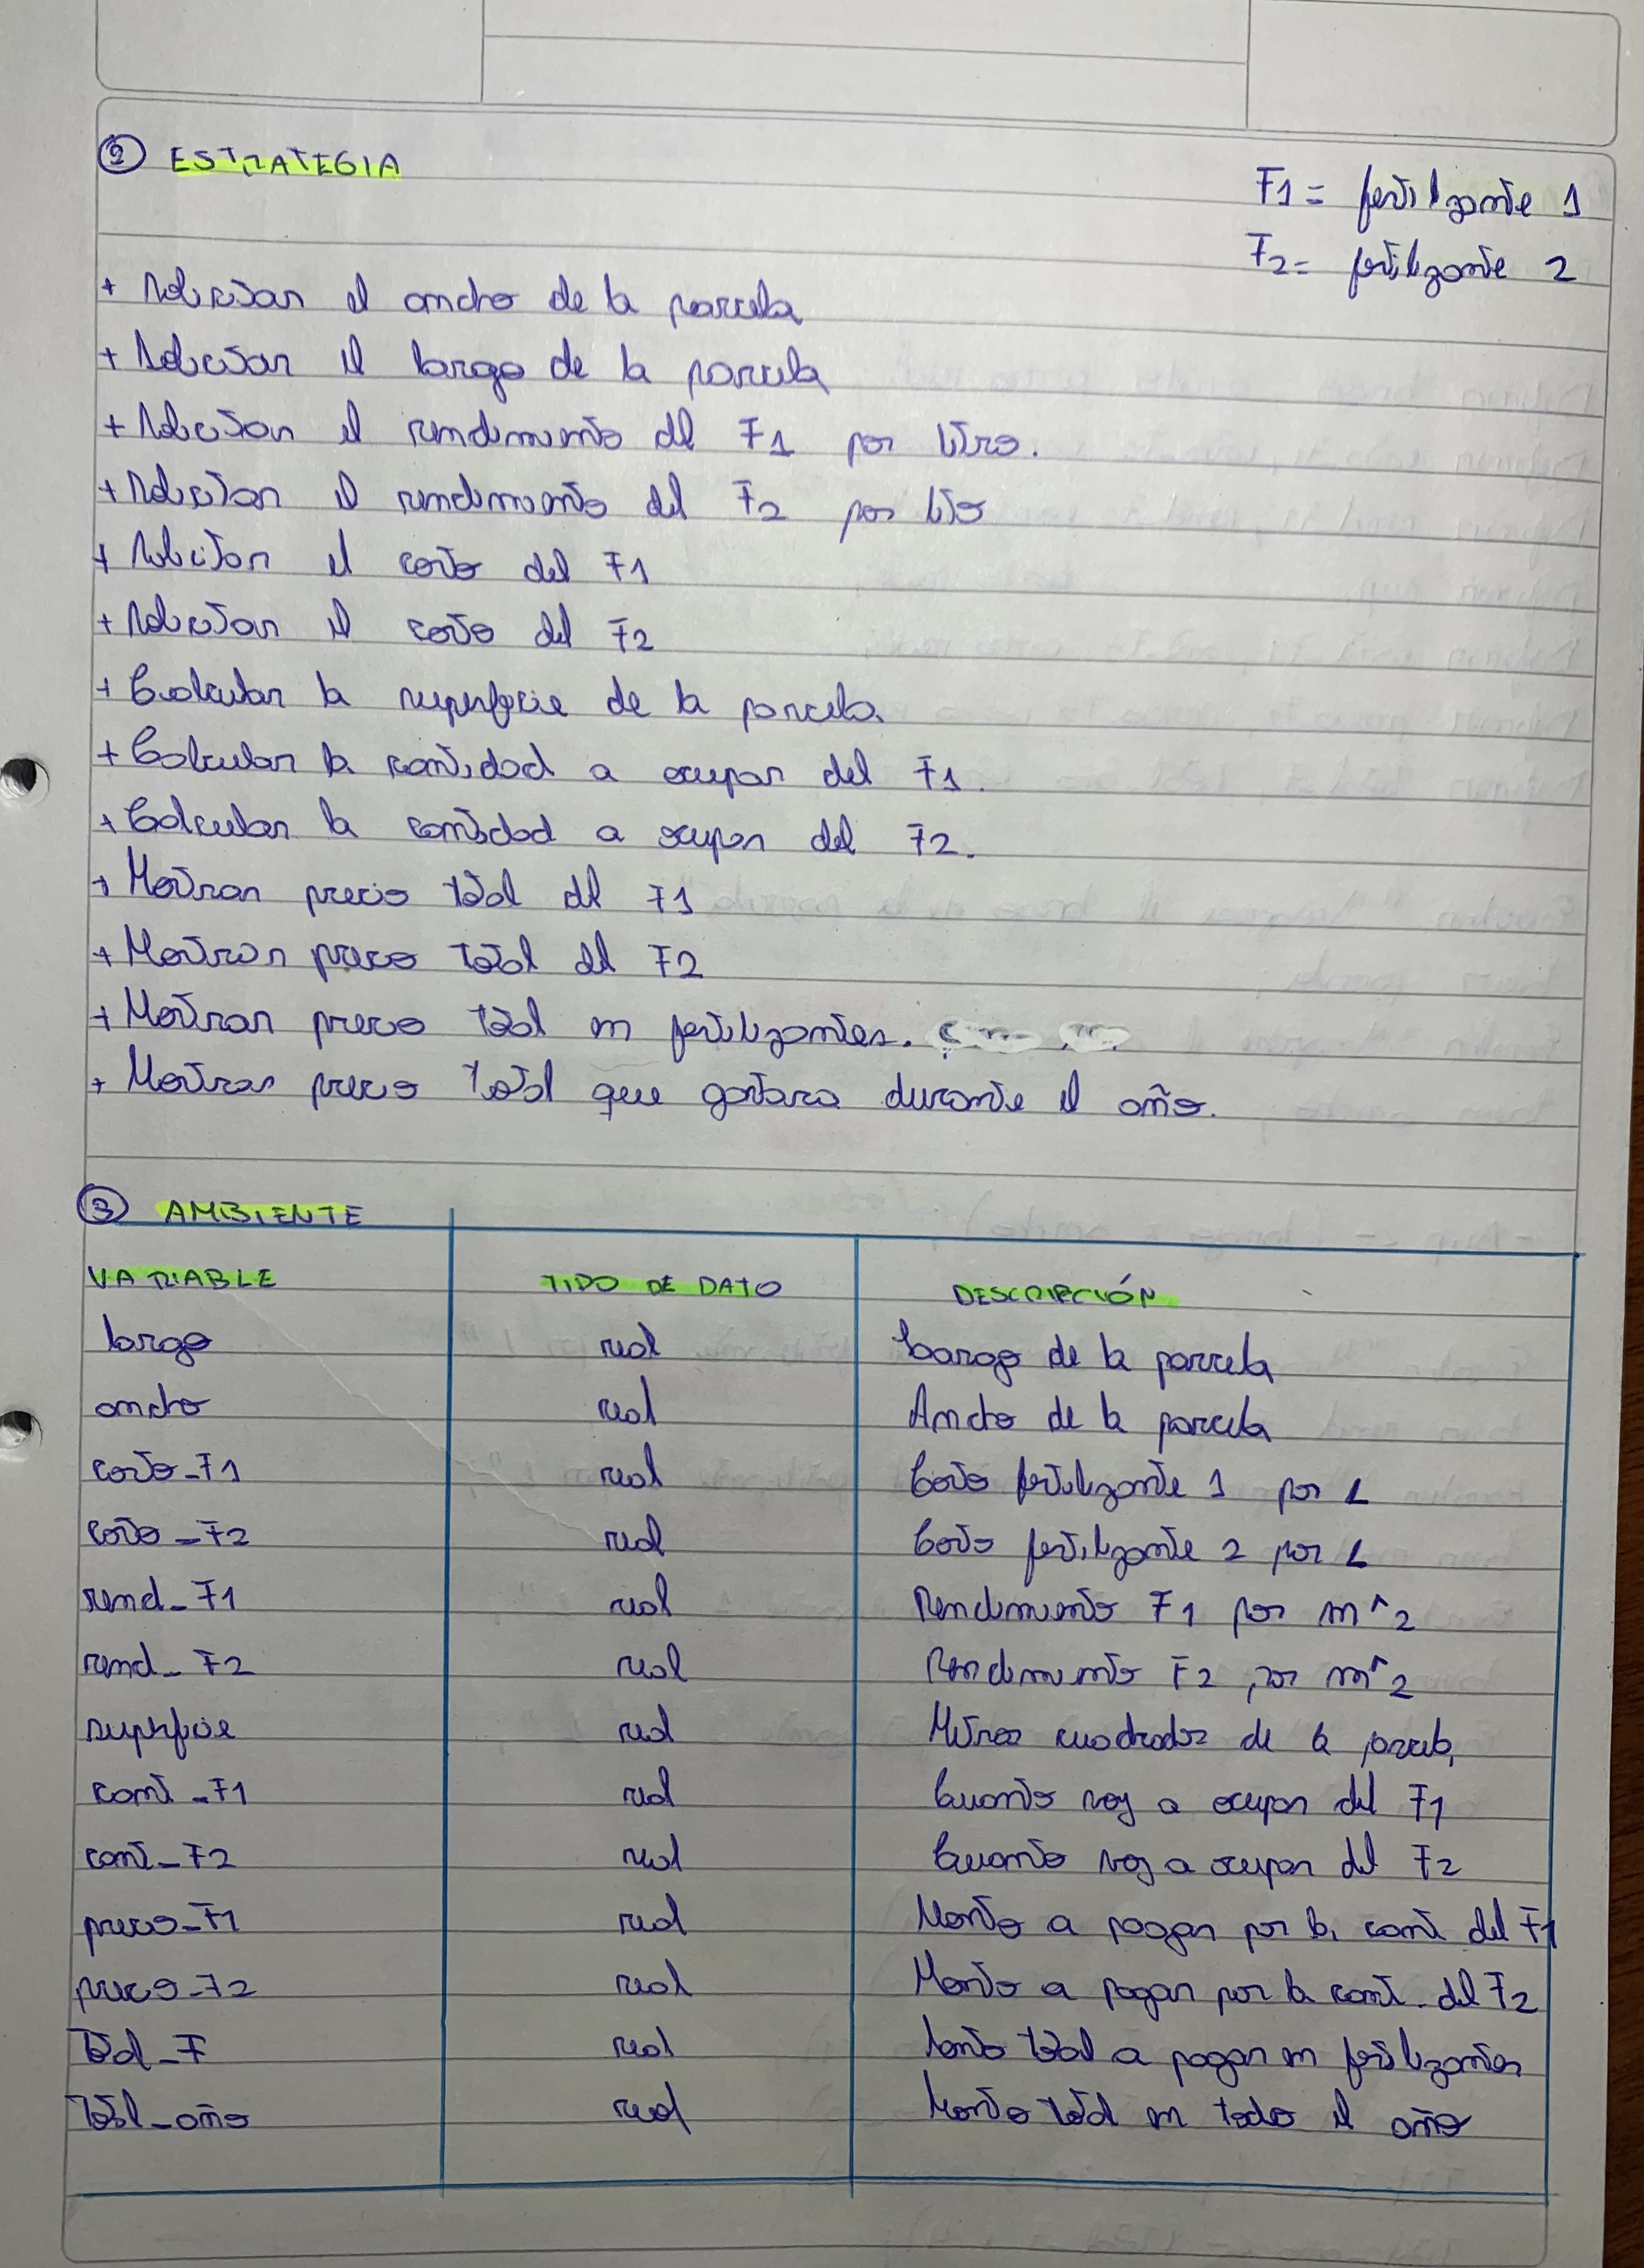 ② ESTRATEGIA
F1 = fertilizante 1
F2 = fertilizante 2
+ Solicitar el ancho de la parcela
+ Solicitar el largo de la parcela
+ Solicitar el rendimiento del F1 por litro.
+ Solicitar el rendimiento del F2 por litro
+ Solicitar el costo del F1
+ Solicitar el costo del F2
+ Calcular la superficie de la parcela.
+ Calcular la cantidad a ocupar del F1.
+ Calcular la cantidad a ocupar del F2.
+ Mostrar precio total del F1
+ Mostrar precio total del F2
+ Mostrar precio total en fertilizantes.
+ Mostrar precio total que gastara durante el año.
③ AMBIENTE
VARIABLE TIPO DE DATO DESCRIPCIÓN
largo real Largo de la parcela
ancho real Ancho de la parcela
costo_F1 real Costo fertilizante 1 por L
costo_F2 real Costo fertilizante 2 por L
rend_F1 real Rendimiento F1 por m^2
rend_F2 real Rendimiento F2 por m^2
superficie real Metros cuadrados de la parcela
cant_F1 real Cuanto voy a ocupar del F1
cant_F2 real Cuanto voy a ocupar del F2
precio_F1 real Monto a pagar por la cant del F1
precio_F2 real Monto a pagar por la cant. del F2
Total_F real Monto total a pagar en fertilizantes
Total_año real Monto total en todo el año